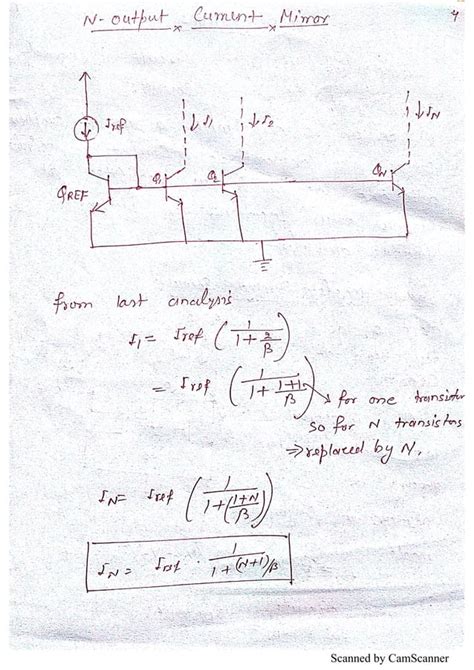 N-output Current Mirror
4
Iref
I1
I2
IN
QREF
Q1
Q2
QN
from last analysis
I1 = Iref (1/(1+2/β))
= Iref (1/(1+(1+1)/β))
for one transistor
so for N transistors
⇒replaced by N.
IN = Iref (1/(1+((1+N)/β)))
IN = Iref · 1/(1+(N+1)/β)
Scanned by CamScanner